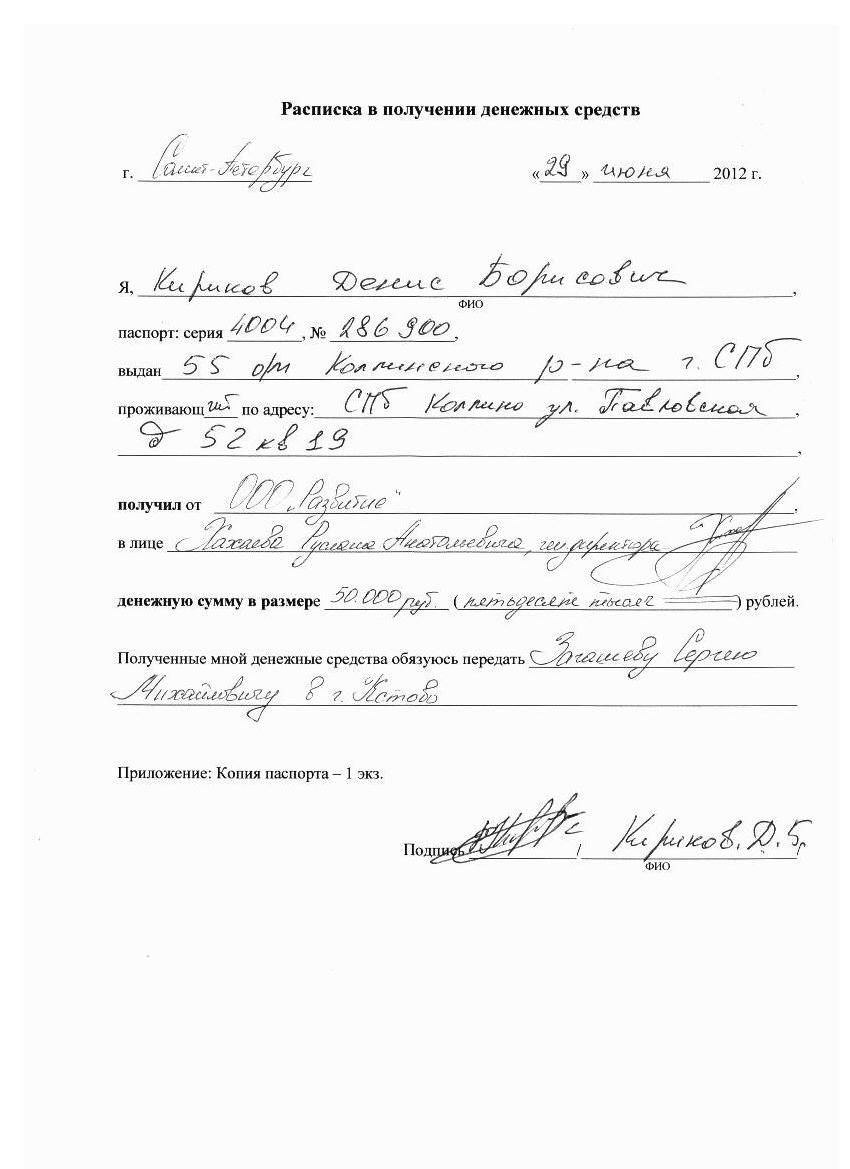 Расписка в получении денежных средств
г. Санкт-Петербург «29» июня 2012 г.
Я, Кириков Денис Борисович,
ФИО
паспорт: серия 4004, № 286 900,
выдан 55 о/м Колпинского р-на г. СПб,
проживающий по адресу: СПб Колпино ул. Павловская,
д 52 кв 19,
получил от ООО „Развитие“,
в лице Хахаева Руслана Анатольевича, ген директора
денежную сумму в размере 50.000 руб. (пятьдесят тысяч) рублей.
Полученные мной денежные средства обязуюсь передать Загашеву Сергею
Михайловичу в г. Кстово
Приложение: Копия паспорта – 1 экз.
Подпись / Кириков. Д. Б.
ФИО